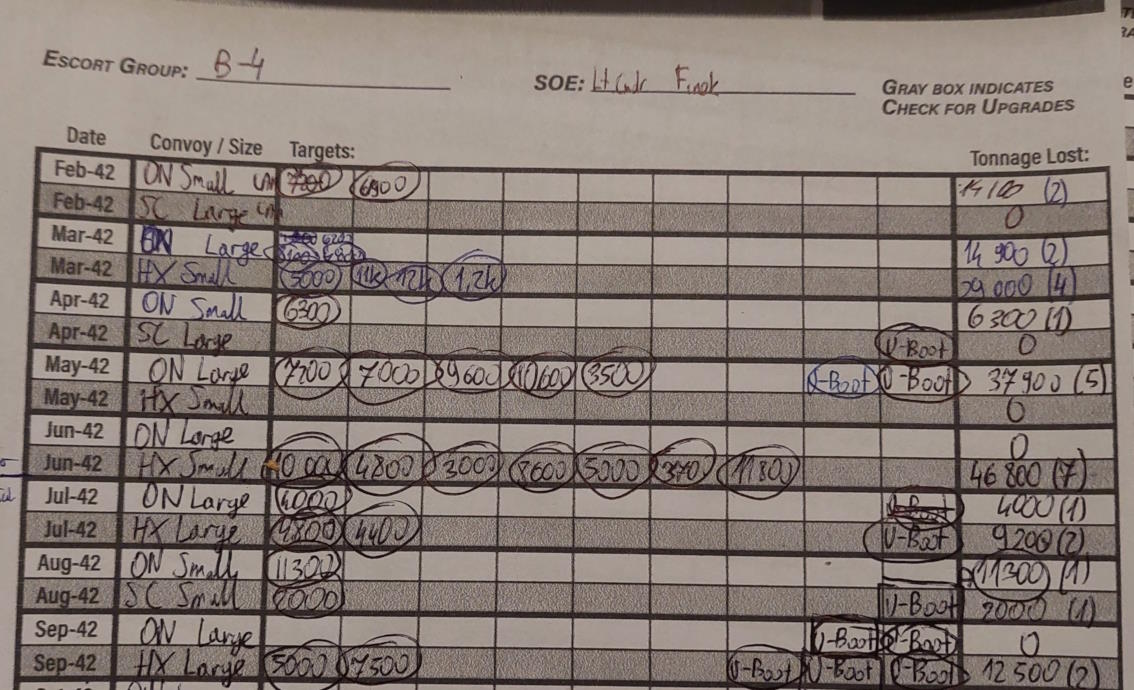 ESCORT GROUP: B-4
SOE: Lt Cmdr
GRAY BOX INDICATES
CHECK FOR UPGRADES
Date Convoy / Size Targets: Tonnage Lost:
Feb-42 ON Small 7200 6900 14100 (2)
Feb-42 SC Large 0
Mar-42 ON Large 14 900 (2)
Mar-42 HX Small 5000 11k 12k 1,2k 29 000 (4)
Apr-42 ON Small 6300 6 300 (1)
Apr-42 SC Large U-Boot 0
May-42 ON Large 7200 7000 9600 10600 3500 U-Boot U-Boot 37 900 (5)
May-42 HX Small 0
Jun-42 ON Large 0
Jun-42 HX Small 10 000 4800 3000 8600 5000 3700 11800 46 800 (7)
Jul-42 ON Large 4000 4000 (1)
Jul-42 HX Large 4800 4400 U-Boot 9200 (2)
Aug-42 ON Small 11300 11300 (1)
Aug-42 SC Small 2000 U-Boot 2000 (1)
Sep-42 ON Large U-Boot U-Boot 0
Sep-42 HX Large 5000 7500 U-Boot U-Boot U-Boot 12 500 (2)